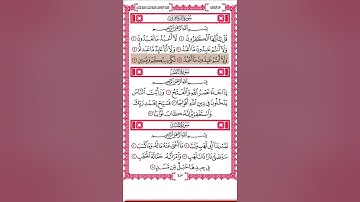 سُورَةُ الكَافِرُونَ
بِسْمِ اللَّهِ الرَّحْمَٰنِ الرَّحِيمِ
قُلْ يَا أَيُّهَا الْكَافِرُونَ ۝ لَا أَعْبُدُ مَا تَعْبُدُونَ ۝
وَلَا أَنتُمْ عَابِدُونَ مَا أَعْبُدُ ۝ وَلَا أَنَا عَابِدٌ مَّا عَبَدتُّمْ ۝
وَلَا أَنتُمْ عَابِدُونَ مَا أَعْبُدُ ۝ لَكُمْ دِينُكُمْ وَلِيَ دِينِ ۝
سُورَةُ النَّصْرِ
بِسْمِ اللَّهِ الرَّحْمَٰنِ الرَّحِيمِ
إِذَا جَاءَ نَصْرُ اللَّهِ وَالْفَتْحُ ۝ وَرَأَيْتَ النَّاسَ
يَدْخُلُونَ فِي دِينِ اللَّهِ أَفْوَاجًا ۝ فَسَبِّحْ بِحَمْدِ رَبِّكَ
وَاسْتَغْفِرْهُ إِنَّهُ كَانَ تَوَّابًا ۝
سُورَةُ المَسَدِ
بِسْمِ اللَّهِ الرَّحْمَٰنِ الرَّحِيمِ
تَبَّتْ يَدَا أَبِي لَهَبٍ وَتَبَّ ۝ مَا أَغْنَىٰ عَنْهُ مَالُهُ وَمَا كَسَبَ ۝
سَيَصْلَىٰ نَارًا ذَاتَ لَهَبٍ ۝ وَامْرَأَتُهُ حَمَّالَةَ الْحَطَبِ ۝
فِي جِيدِهَا حَبْلٌ مِّن مَّسَدٍ ۝
٦٠٣